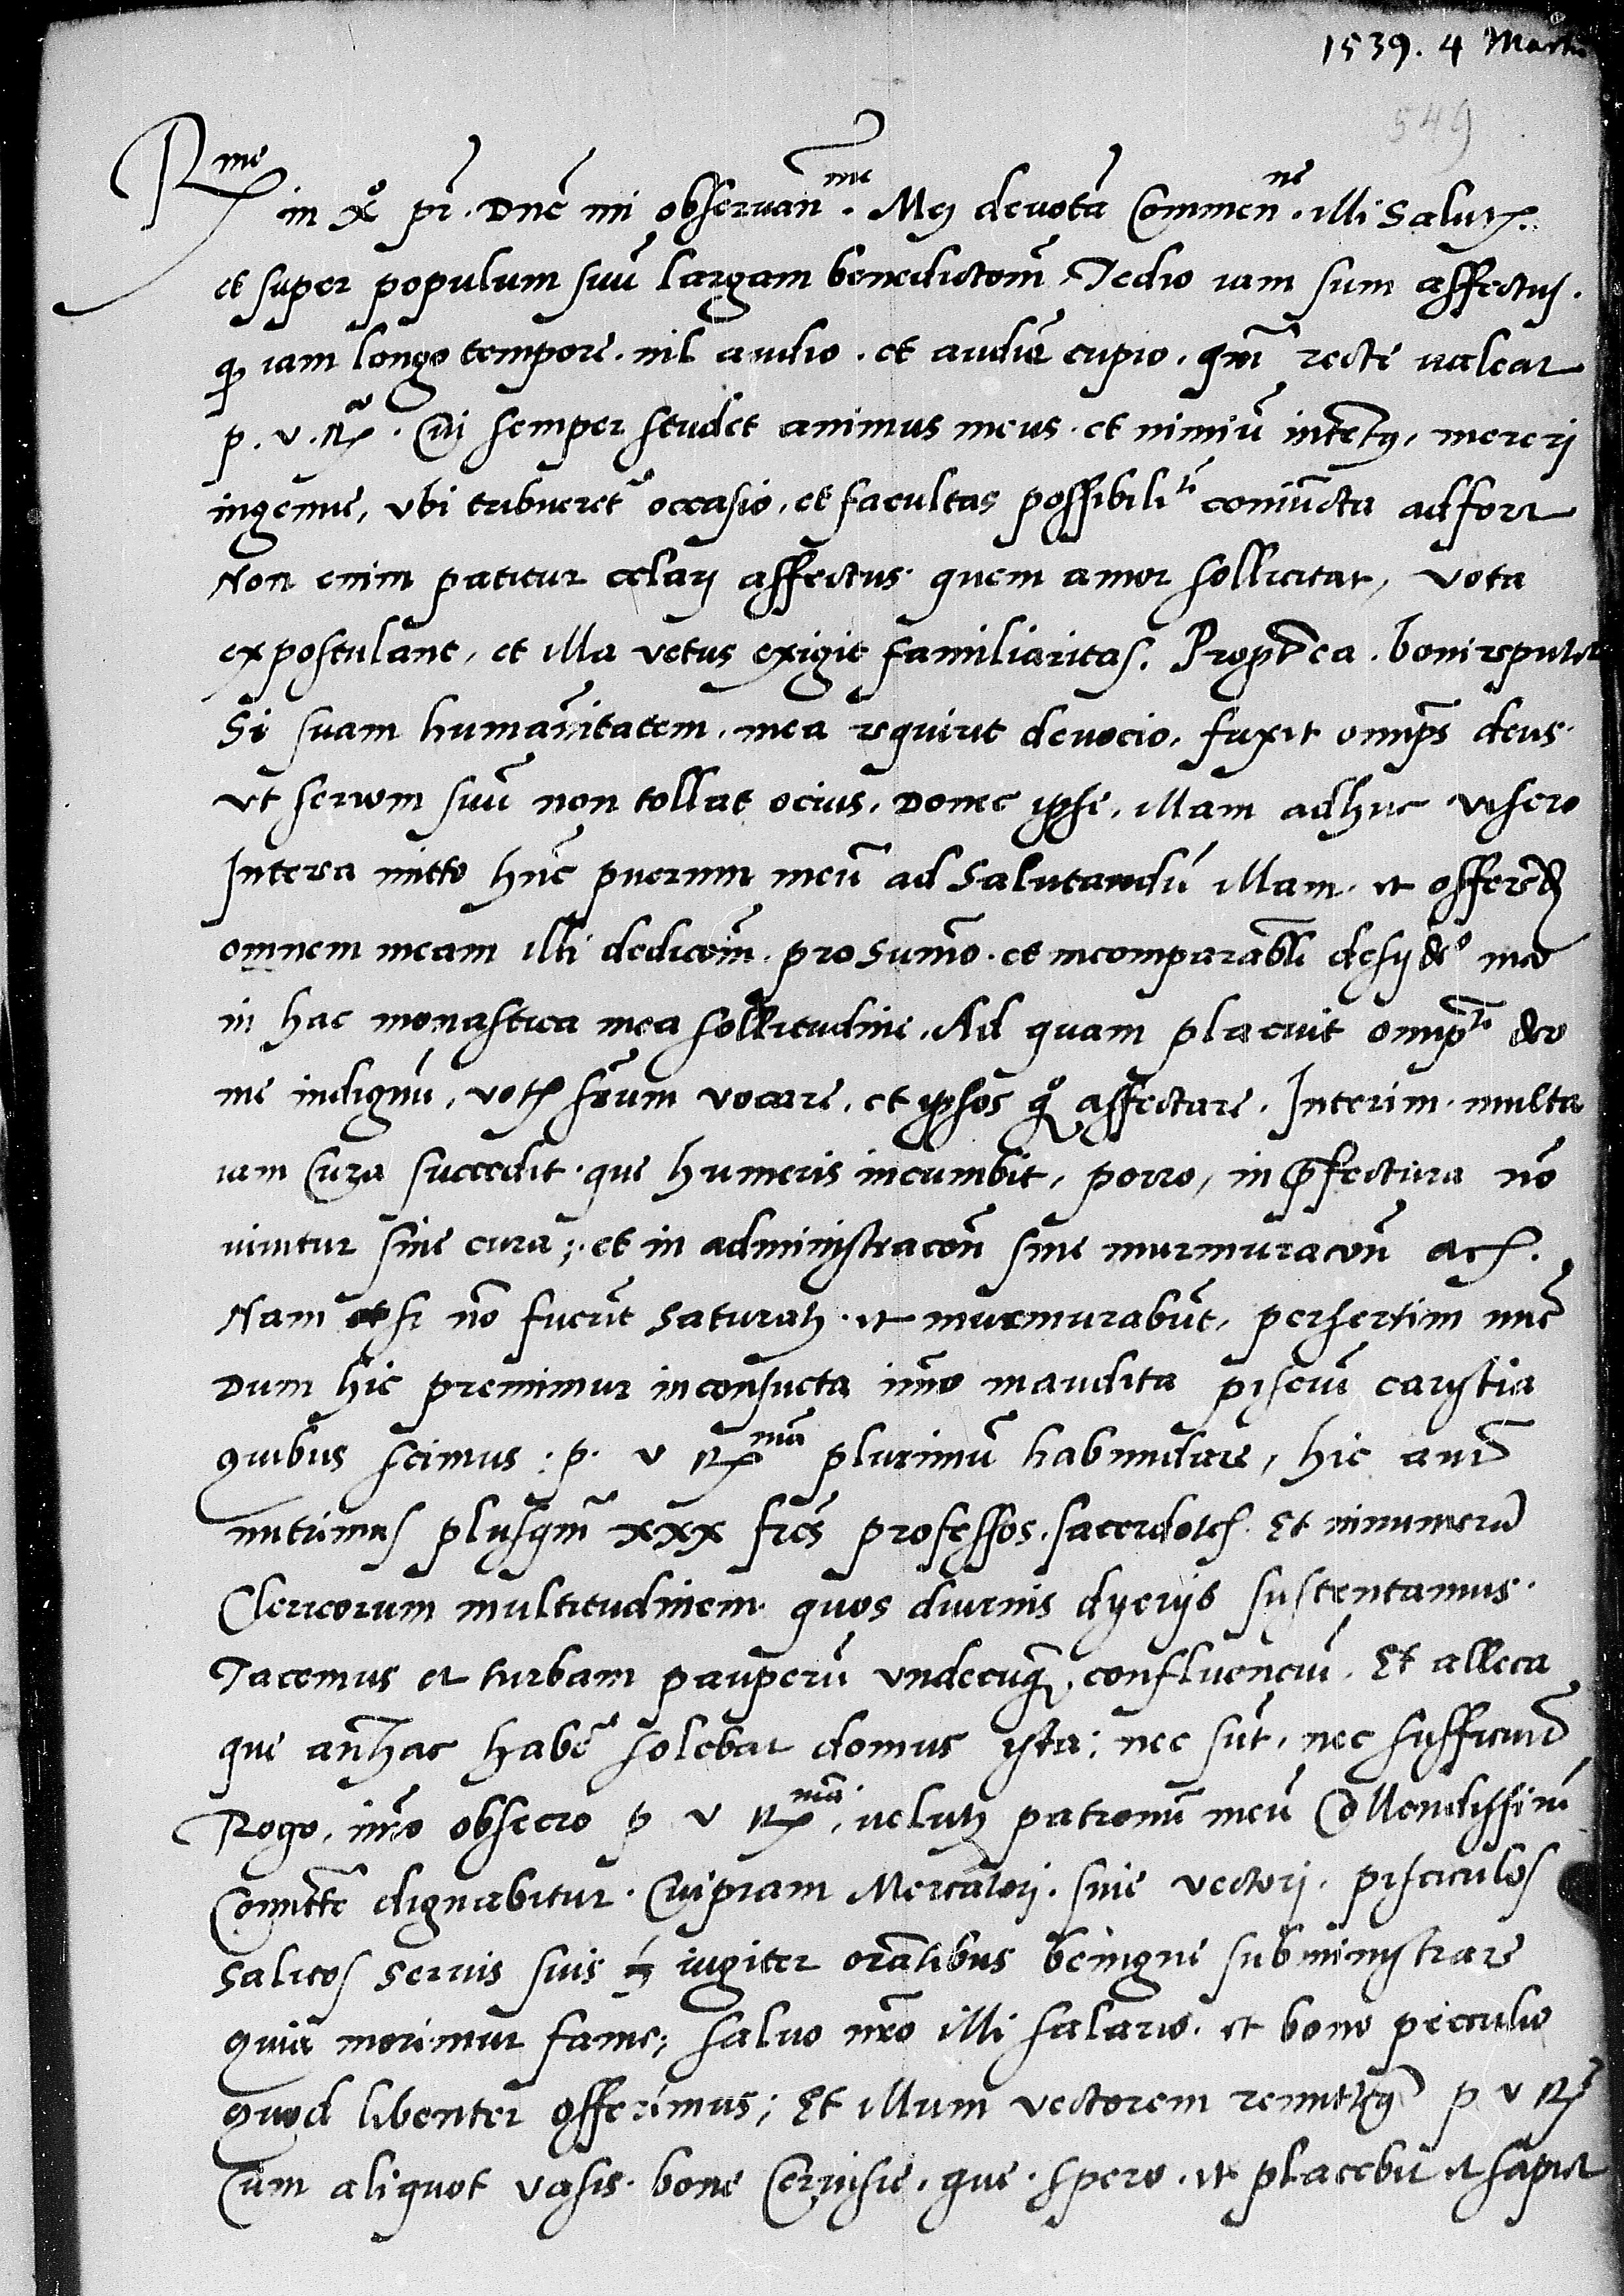 1539. 4 Martii
549
Rme
in xo pr. Dne mi observanme. Mej devotā Commenne. illi Salutē.
et super populum suū largam benedictoēm. Tedio iam sum affectus.
q iam longo tempore. nil audio. et audire cupio. qm̄ recte valeat
p. v. Ra. Cui semper studet animus meus. et nimiū intētus, mererj
ingenue, vbi tribueret occasio, et facultas possibiliti coniūcta adforet
Non enim patitur celarj affectus. quem amor sollicitat, vota
expostulant, et illa vetus exigit familiaritas. Proptea. boni reputet
Si suam humanitatem. mea requirit devocio, faxit omps deus.
vt servum suū non tollat ocius. Donec ipse, illam adhuc visero
Interea mitto hūc puerum meū ad Salutandū illam. et offerēd
omnem meam illi dedicoēm. pro Summo. et incomparabli desyderio meo
in hac monastica mea sollitudine. Ad quam placuit ompti deo
me indignū, votis frūm vocare, et ipsos affectare. Interim. multa
iam Cura succedit. que humeris incumbit, porro, in Prefectura nō
vivitur sine cura; et in administracoē sine murmuracoē
Nam etsi nō fuerīt Saturatj. et murmurabūt, persertim nūc
Dum hic premimur inconsueta imo inaudita pisciū caristia
quibus scimus. p. v Rmā plurimū habundare, hic autē
nutrimus plusqm̄ xxx frēs professos. sacerdotes. Et innumerā
Clericorum multitudinem. quos diurnis sustentamus.
Tacemus et turbam pauperū undecūq confluenciū. Et alleca
que anthac habē solebat domus ista: nec sūt, nec sufficiūt
Rogo, imo obsecro p v Rmā, velutj patronū meū Collendissimū
Comittē dignabitur. Cuipiam Mercatorj. sive vectorj. pisciculos
Salitos Servis suis iugiter orātibus benigne subministrare
quia morimur fame; salvo nro illi salario. et bono peculio
quod libenter offerimus; Et illum vectorem remittē p v R
Cum aliquot vasis. bone Cervisie. que. spero. et placebit et sapiet